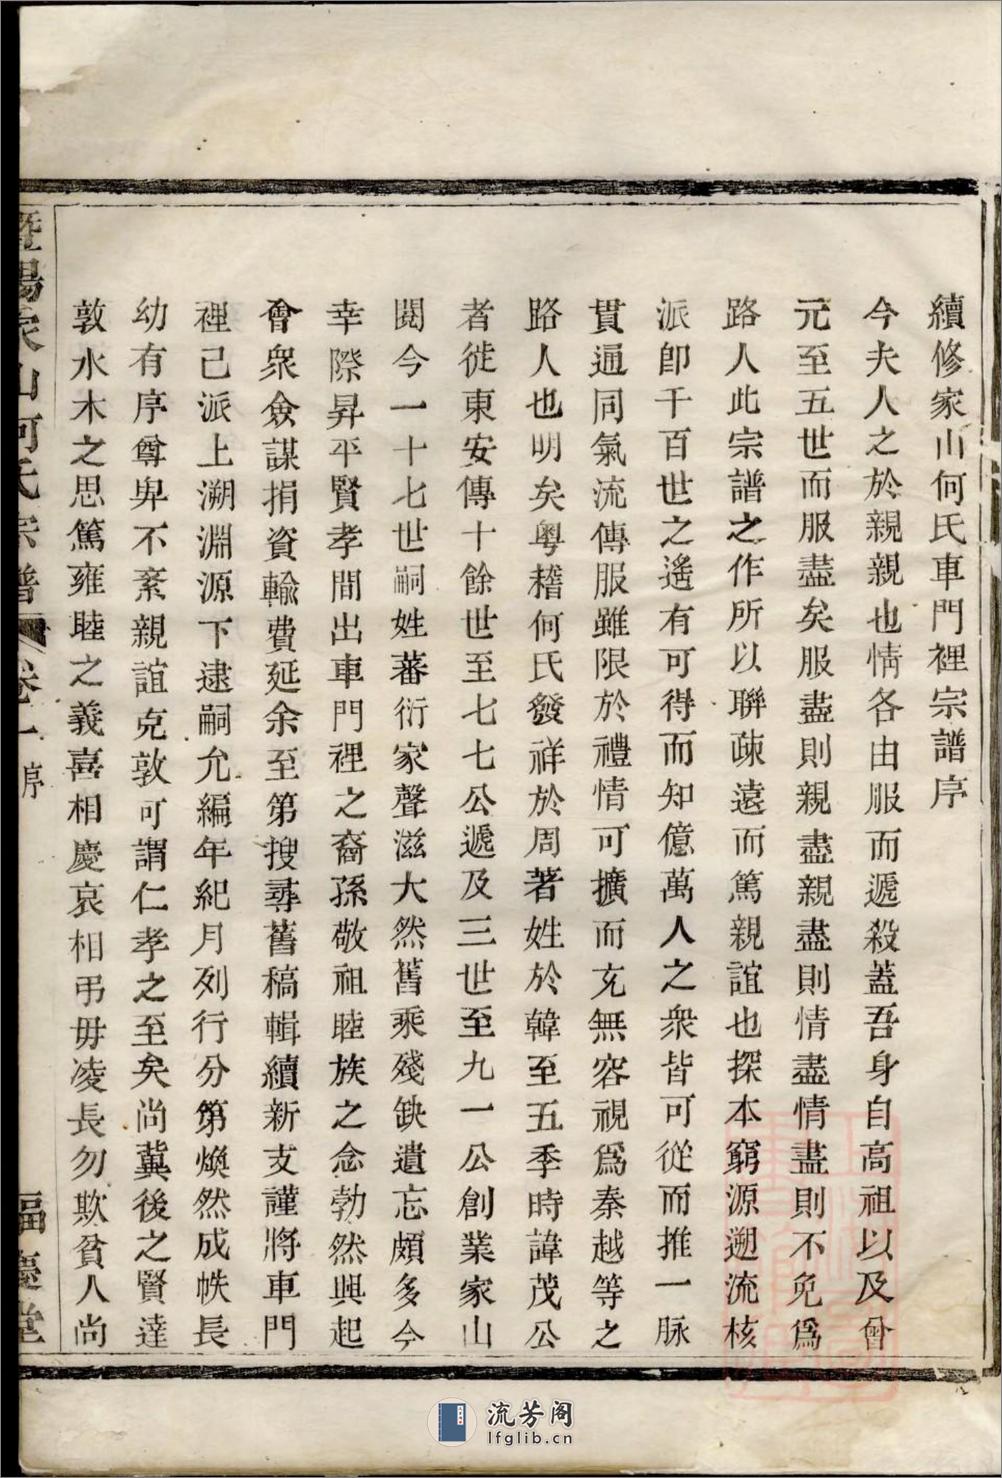 續修家山何氏車門裡宗譜序
今夫人之於親親也情各由服而遞殺蓋吾身自高祖以及曾
元至五世而服盡矣服盡則親盡親盡則情盡情盡則不免爲
路人此宗譜之作所以聯疎遠而篤親誼也探本窮源遡流核
派卽千百世之遙有可得而知億萬人之衆皆可從而推一脉
貫通同氣流傳服雖限於禮情可擴而充無容視爲秦越等之
路人也明矣粤稽何氏發祥於周著姓於韓至五季時諱茂公
者徙東安傳十餘世至七七公遞及三世至九一公創業家山
閱今一十七世嗣姓蕃衍家聲滋大然舊乘殘缺遺忘頗多今
幸際昇平賢孝間出車門裡之裔孫敬祖睦族之念勃然興起
會衆僉謀捐資輸費延余至第搜尋舊稿輯續新支謹將車門
裡己派上溯淵源下逮嗣允編年紀月列行分第煥然成帙長
幼有序尊卑不紊親誼克敦可謂仁孝之至矣尚冀後之賢達
敦水木之思篤雍睦之義喜相慶哀相弔毋凌長勿欺貧人尚
暨陽家山何氏宗譜 卷一 序 福慶堂
流芳阁
lfglib.cn